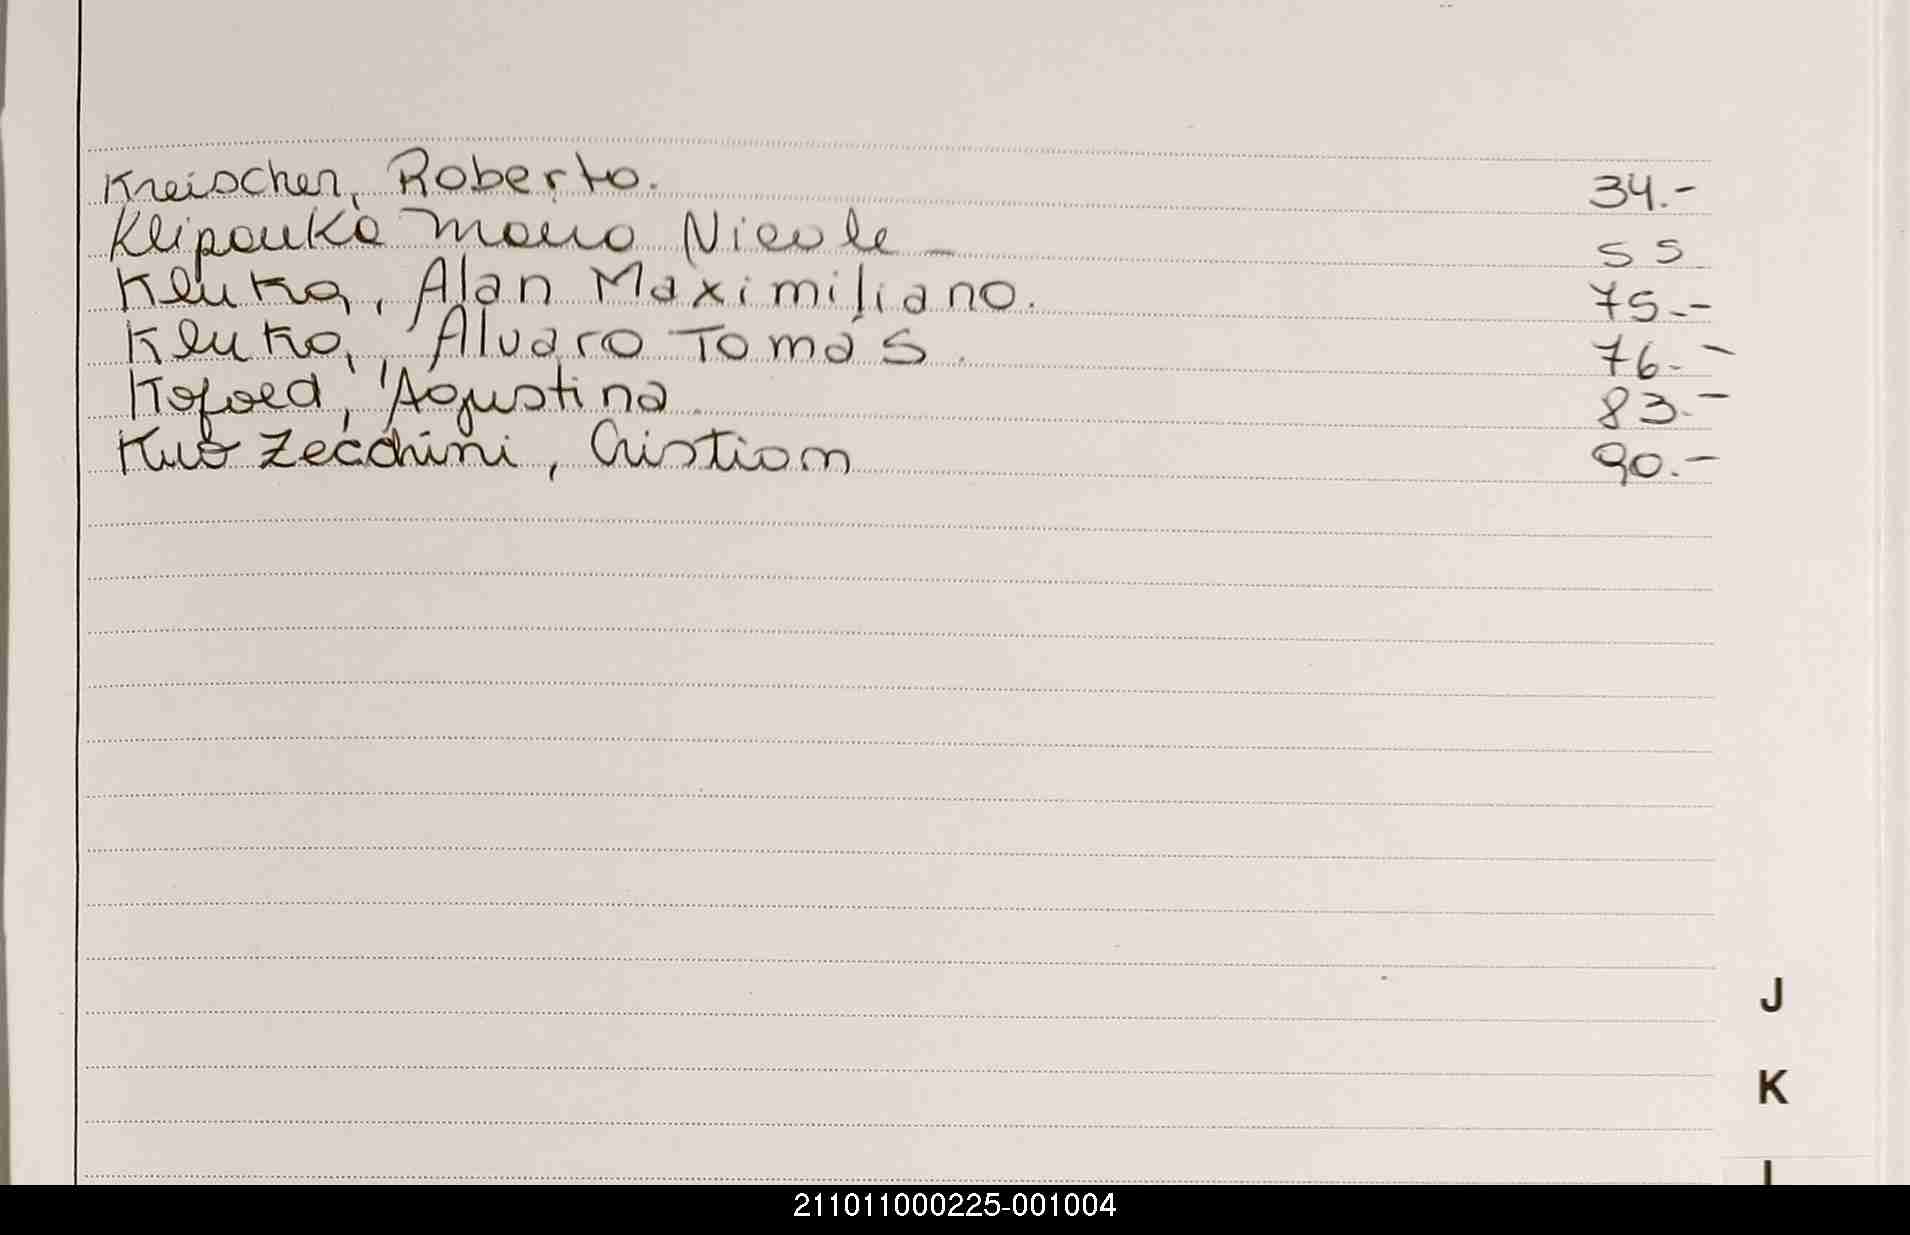 Kreischer, Roberto. 34.-
Klipauka Maria Nicole - 55
Kluka, Alan Maximiliano. 75.-
Kluka, Alvaro Tomás. 76.-
Kofoed, Agustina 83.-
Kuo Zecchini, Cristian 90.-
J
K
L
211011000225-001004